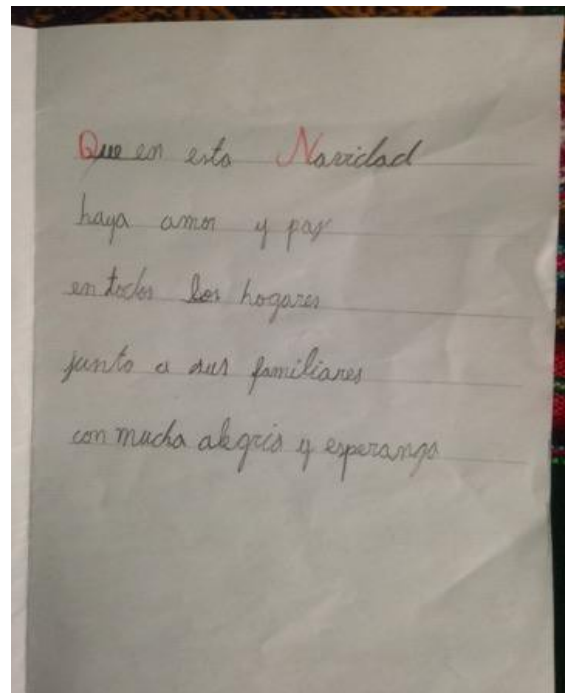 Que en esta Navidad
haya amor y paz
en todos los hogares
junto a sus familiares
con mucha alegría y esperanza